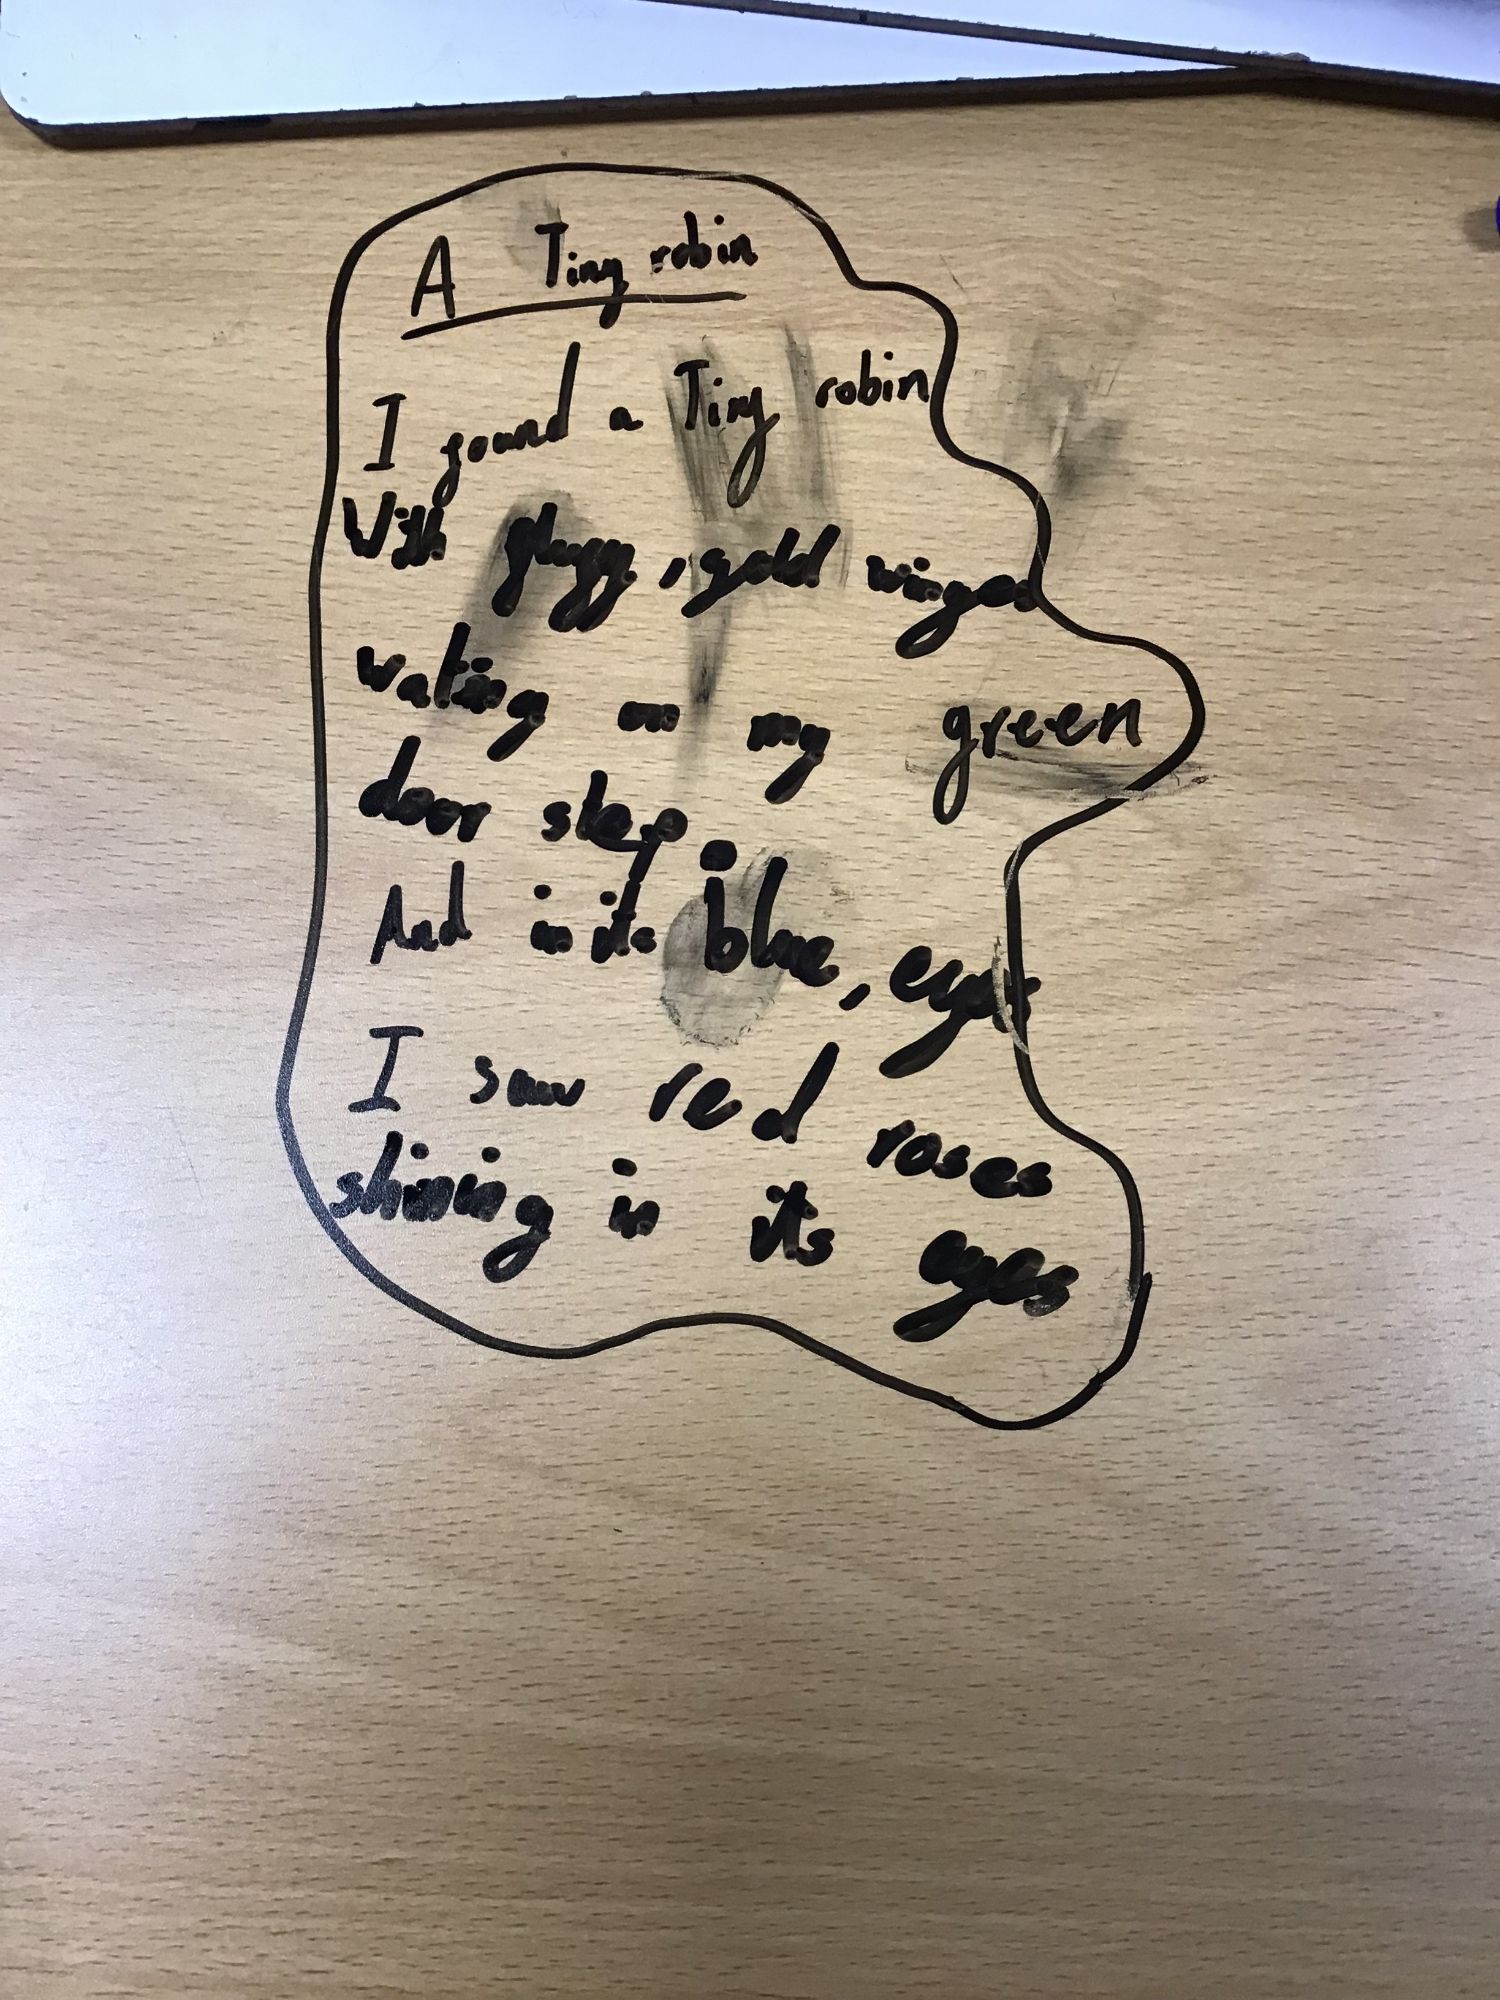 A Tiny robin
I found a Tiny robin
With fluffy, gold winges
wating on my green
door step.
And in its blue, eyes
I saw red roses
shining in its eyes